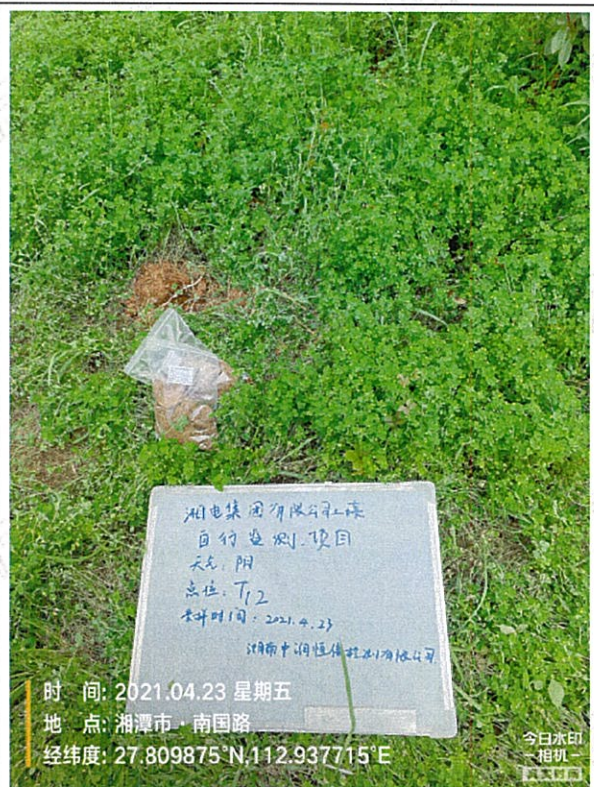 湘电集团有限公司土壤
自行监测项目
天气: 阴
点位: T12
采样时间: 2021.4.23
湖南中润恒信检测有限公司
时 间: 2021.04.23 星期五
地 点: 湘潭市·南国路
经纬度: 27.809875°N,112.937715°E
今日水印
-相机-
真实时间